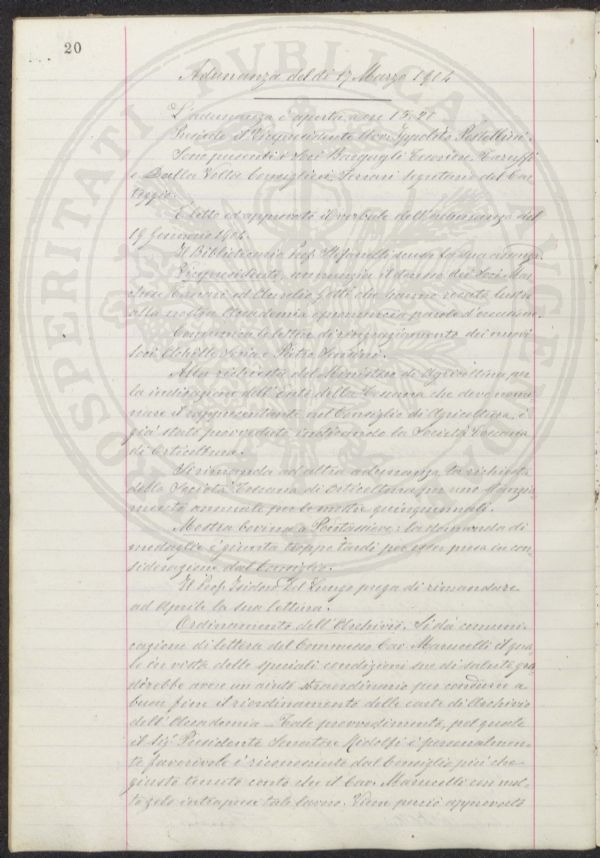 20
Adunanza del dì 17 Marzo 1904
L'adunanza è aperta a ore 15.21
Presiede il Vicepresidente Ippolito Pestellini.
Sono presenti i Soci Bargagli Tesoriere, Taruffi
e Dalla Volta Consiglieri, Segretario del Car-
teggio.
È letto ed approvato il verbale dell'adunanza del
19 Gennaio 1904.
Il Bibliotecario Prof. Stefanelli scusa la sua assenza.
Vicepresidente, comunica il decesso dei Soci Mar-
chese ed Aurelio Gotti che hanno recato lustro
alla nostra Accademia e pronuncia parole d'occasione.
Comunica le lettere di ringraziamento dei nuovi
Soci Achille e Pietro
Alla richiesta del Ministero di Agricoltura per
la indicazione dell'Ente della Toscana che deve nomi-
nare il rappresentante nel Consiglio di Agricoltura, è
già stato provveduto indicando la Società Toscana
di Orticultura.
Si rimanda ad altra adunanza la richiesta
della Società Toscana di Orticultura per uno stanzia-
mento annuale per le mostre quinquennali.
Mostra bovina a Pontassieve: la domanda di
medaglie è giunta troppo tardi per esser presa in con-
siderazione dal Consiglio.
Il Prof. Isidoro Del Lungo prega di rimandare
ad Aprile la sua lettura.
Ordinamento dell'Archivio. Si dà comuni-
cazione di lettera del Commesso Cav. Marucelli il qua-
le in vista delle speciali condizioni sue di salute gra-
direbbe avere un aiuto straordinario per condurre a
buon fine il riordinamento delle carte di Archivio
dell'Accademia – Tale provvedimento, pel quale
il Sig. Presidente Senatore Ridolfi è personalmen-
te favorevole è riconosciuto dal Consiglio più che
giusto tenuto conto che il Cav. Marucelli con mol-
to zelo intraprese tale lavoro. Viene perciò approvato
PROSPERITATI PUBLICAE AUGENDAE